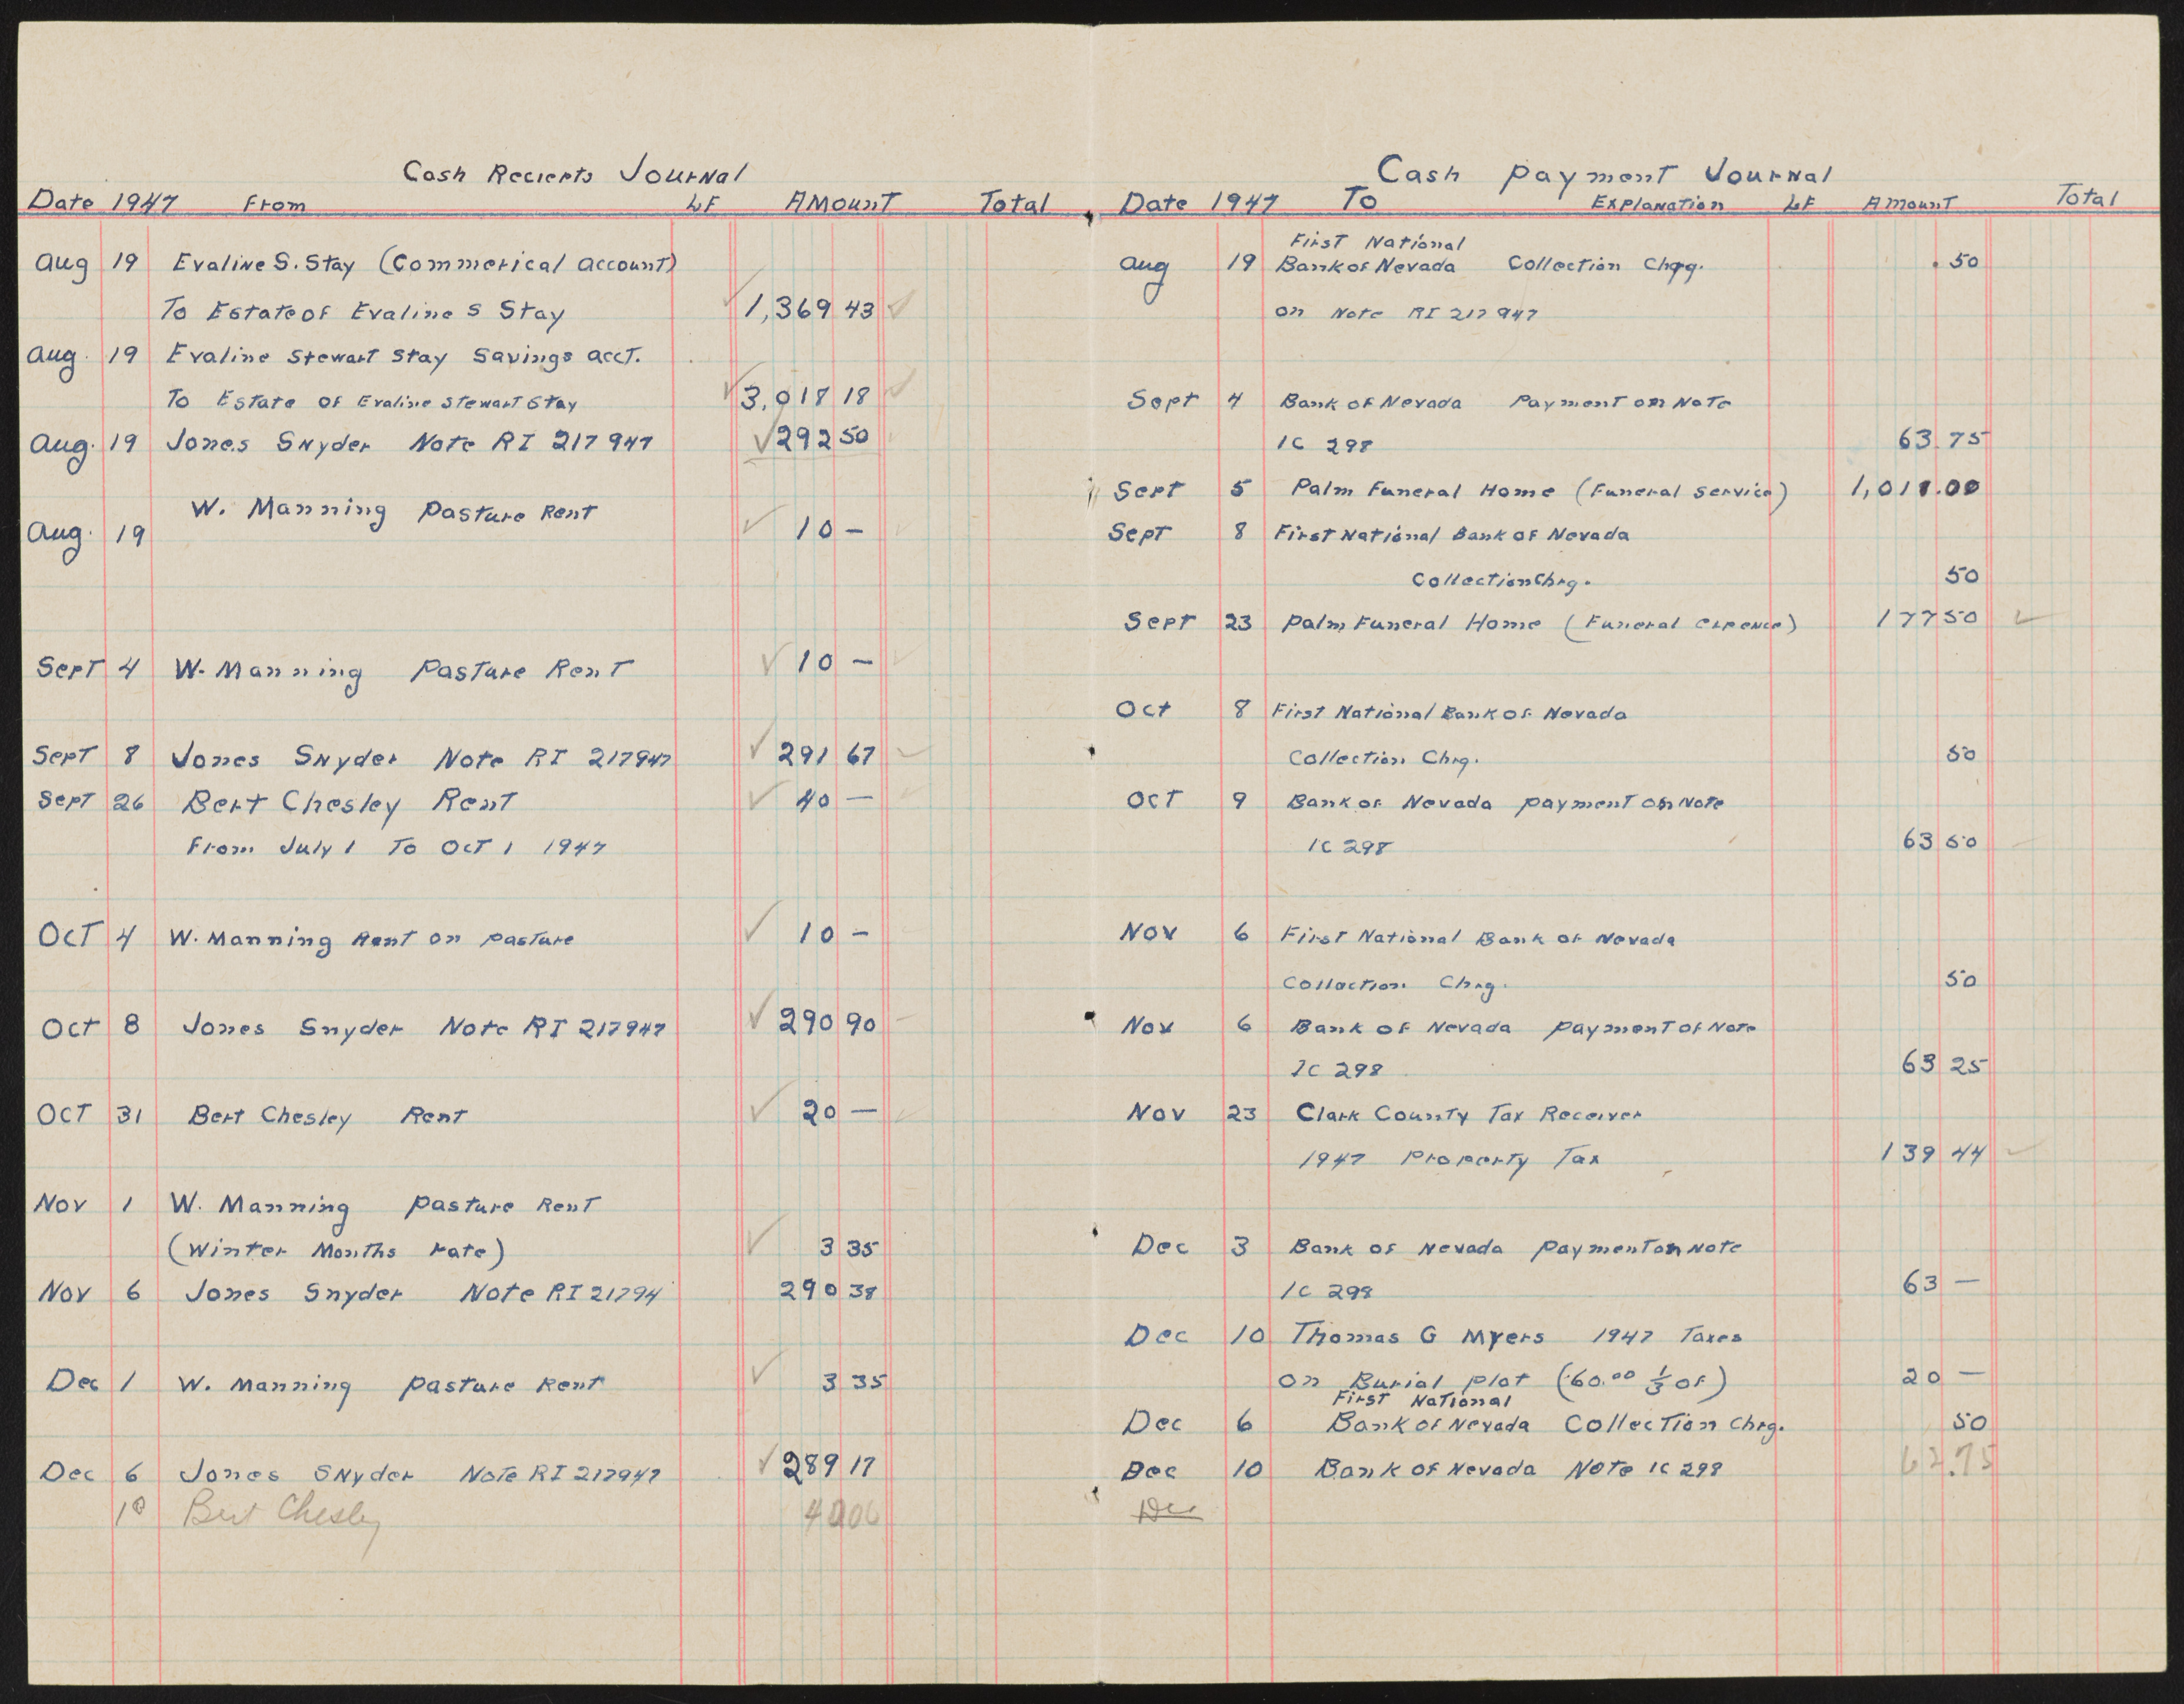 Cash Reciepts Journal
Date 1947 From LF Amount Total
Aug 19 Evaline S. Stay (Commerical account)
To Estate of Evaline S Stay 1,369 43
Aug. 19 Evaline Stewart Stay Savings acct.
To Estate of Evaline Stewart Stay 3,018 18
Aug. 19 Jones Snyder Note RI 217947 292 50
Aug. 19 W. Manning Pasture Rent 10 —
Sept 4 W. Manning Pasture Rent 10 —
Sept 8 Jones Snyder Note RI 217947 291 67
Sept 26 Bert Chesley Rent 40 —
From July 1 To Oct 1 1947
Oct 4 W. Manning Rent on pasture 10 —
Oct 8 Jones Snyder Note RI 217947 290 90
Oct 31 Bert Chesley Rent 20 —
Nov 1 W. Manning Pasture Rent
(Winter Months rate) 3 35
Nov 6 Jones Snyder Note RI 21794 290 38
Dec 1 W. Manning Pasture Rent 3 35
Dec 6 Jones Snyder Note RI 217947 289 17
10 Bert Chesley
Cash Payment Journal
Date 1947 To Explanation LF Amount Total
First National
Aug 19 Bank of Nevada Collection Chrg. .50
on Note RI 217947
Sept 4 Bank of Nevada Payment on Note
IC 298 63.75
Sept 5 Palm Funeral Home (Funeral service) 1,011.00
Sept 8 First National Bank of Nevada
Collection Chrg. 50
Sept 23 Palm Funeral Home (Funeral expence) 177 50
Oct 8 First National Bank of Nevada
Collection Chrg. 50
Oct 9 Bank of Nevada payment on Note
IC 298 63 50
Nov 6 First National Bank of Nevada
Collection Chrg. 50
Nov 6 Bank of Nevada payment of Note
IC 298 63 25
Nov 23 Clark County Tax Receiver
1947 Property Tax 139 44
Dec 3 Bank of Nevada Payment on Note
IC 298 63 —
Dec 10 Thomas G Myers 1947 Taxes
on Burial plot (60.00 1/3 of) 20 —
First National
Dec 6 Bank of Nevada Collection Chrg. 50
Dec 10 Bank of Nevada Note IC 298 62.75
Dec